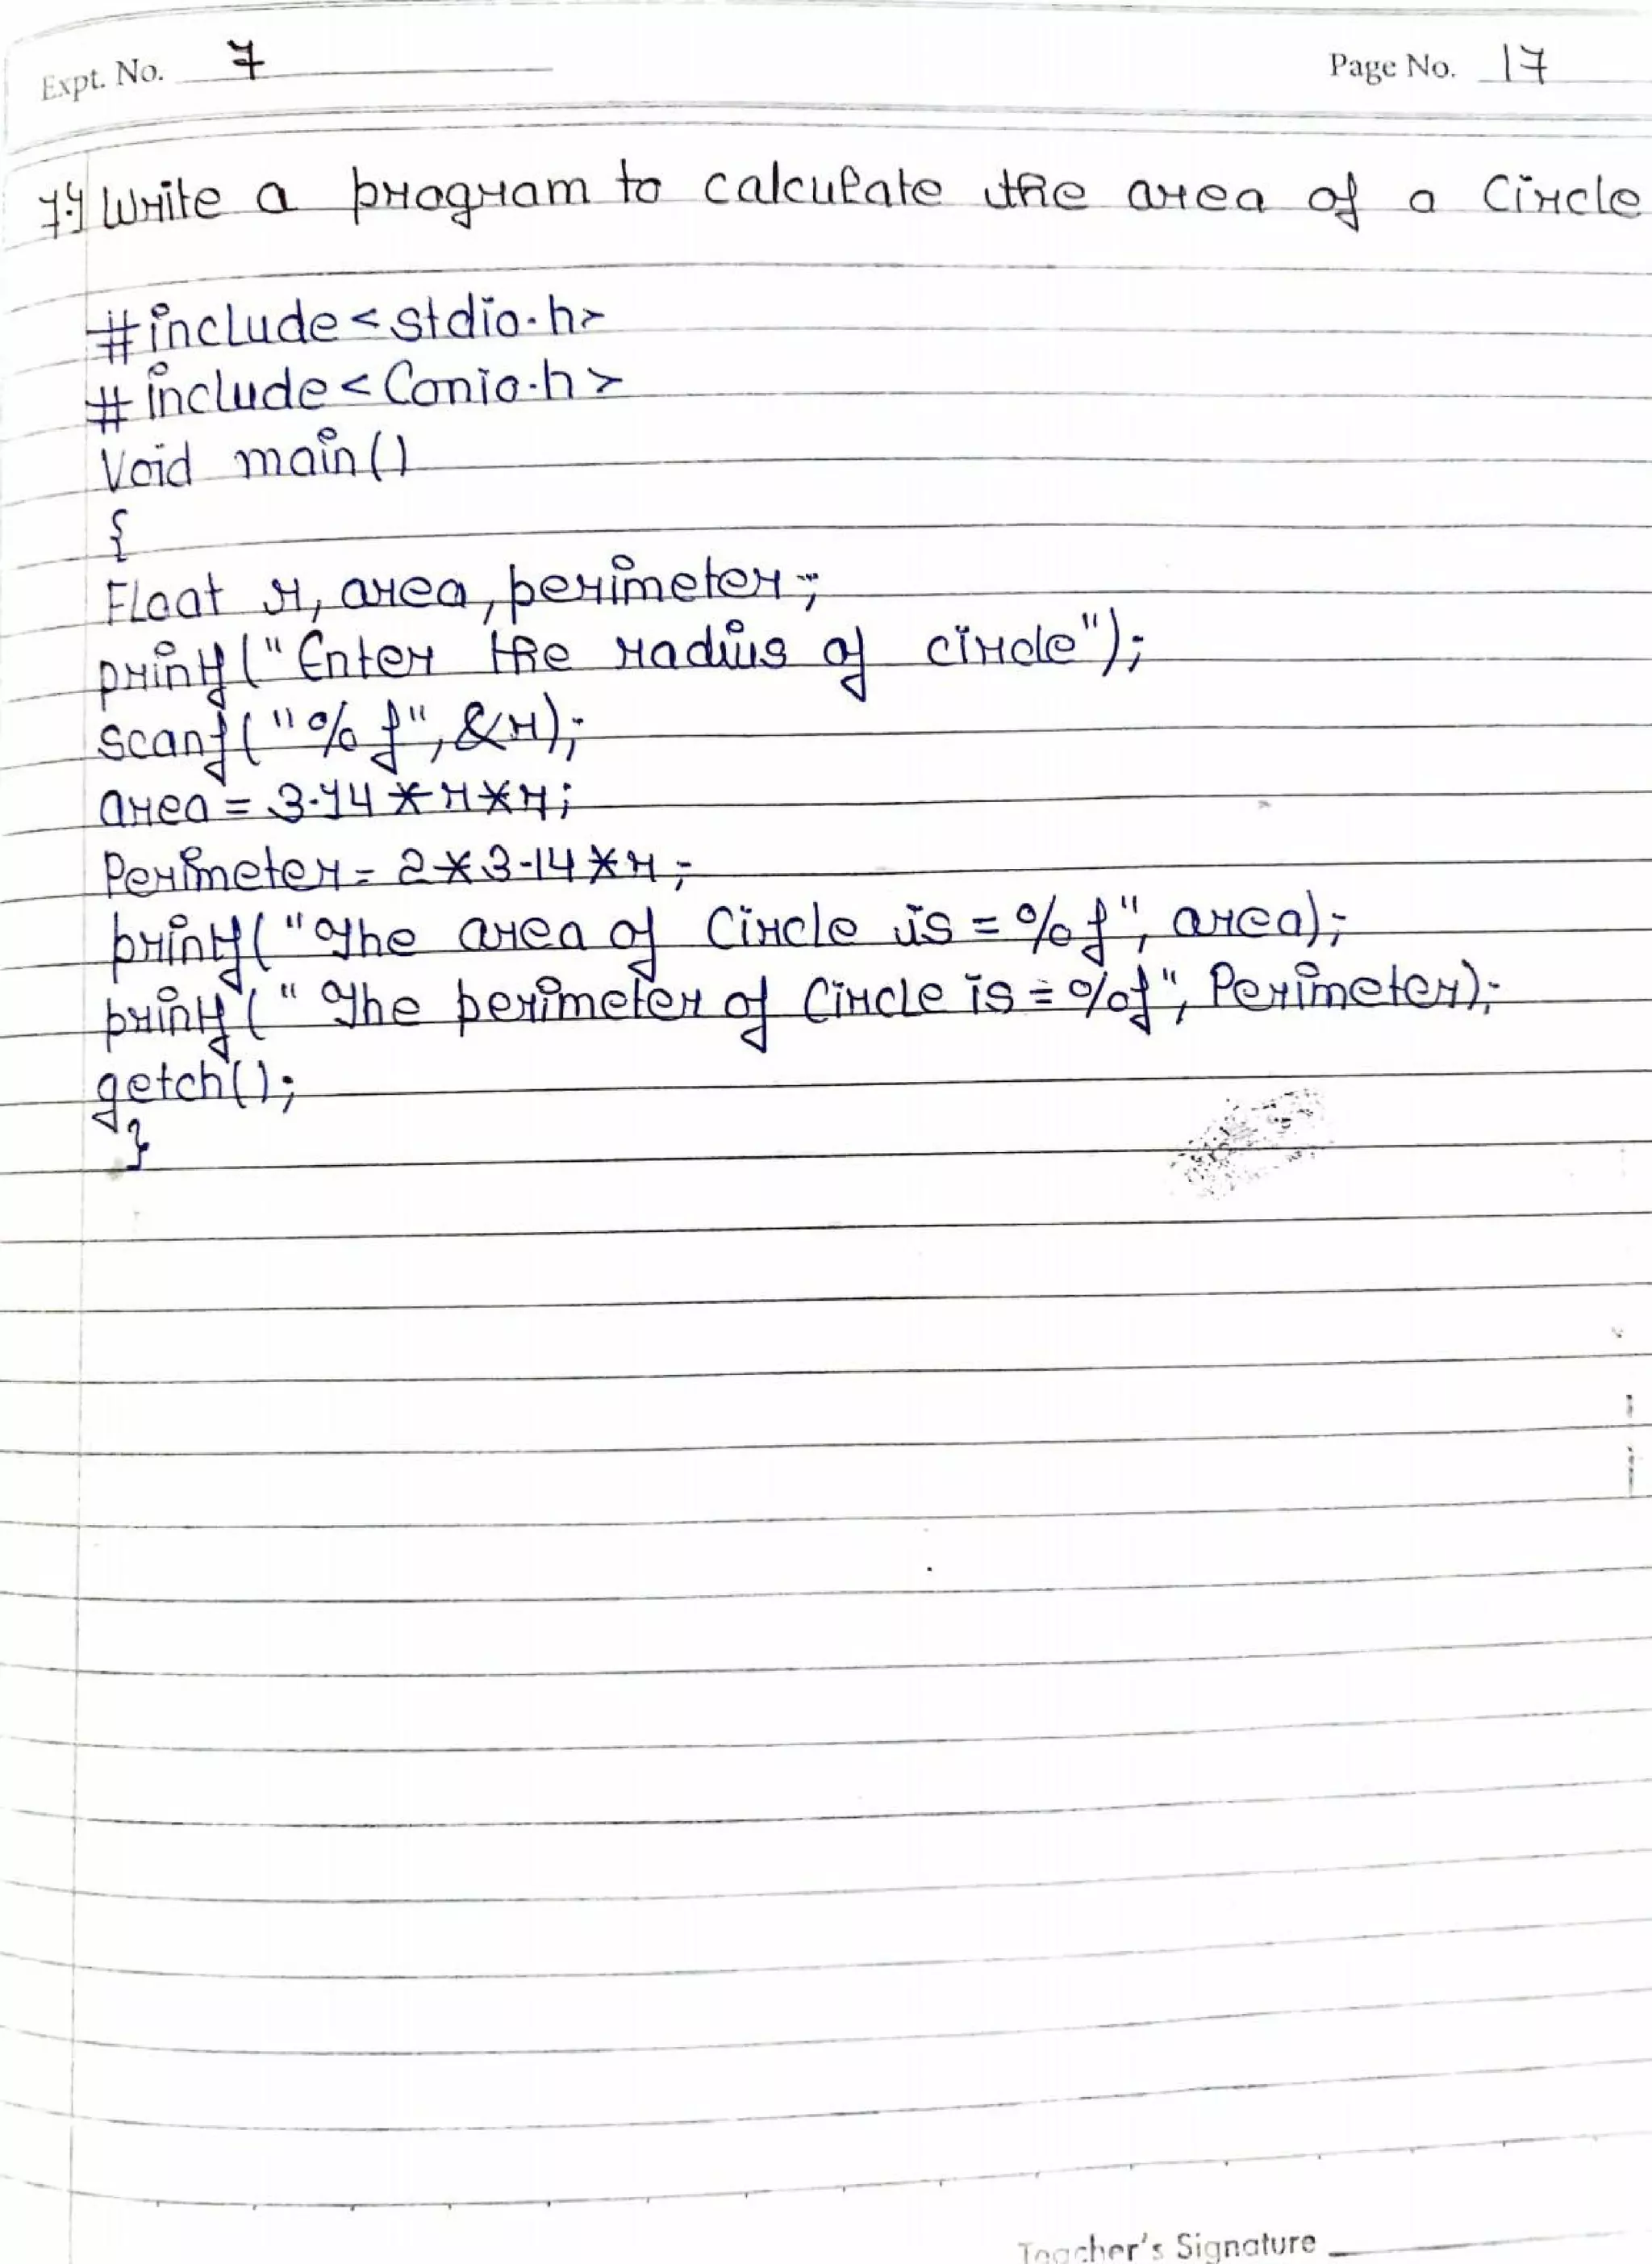 Expt. No. 7
Page No. 17
7.) Write a program to calculate the area of a Circle
#include<stdio.h>
#include<Conio.h>
Void main()
{
Float r, area, perimeter;
printf("Enter the radius of circle");
scanf("%f",&r);
area = 3.14*r*r;
Perimeter = 2*3.14*r;
printf("The area of Circle is = %f", area);
printf("The perimeter of Circle is = %f", Perimeter);
getch();
}
Teacher's Signature